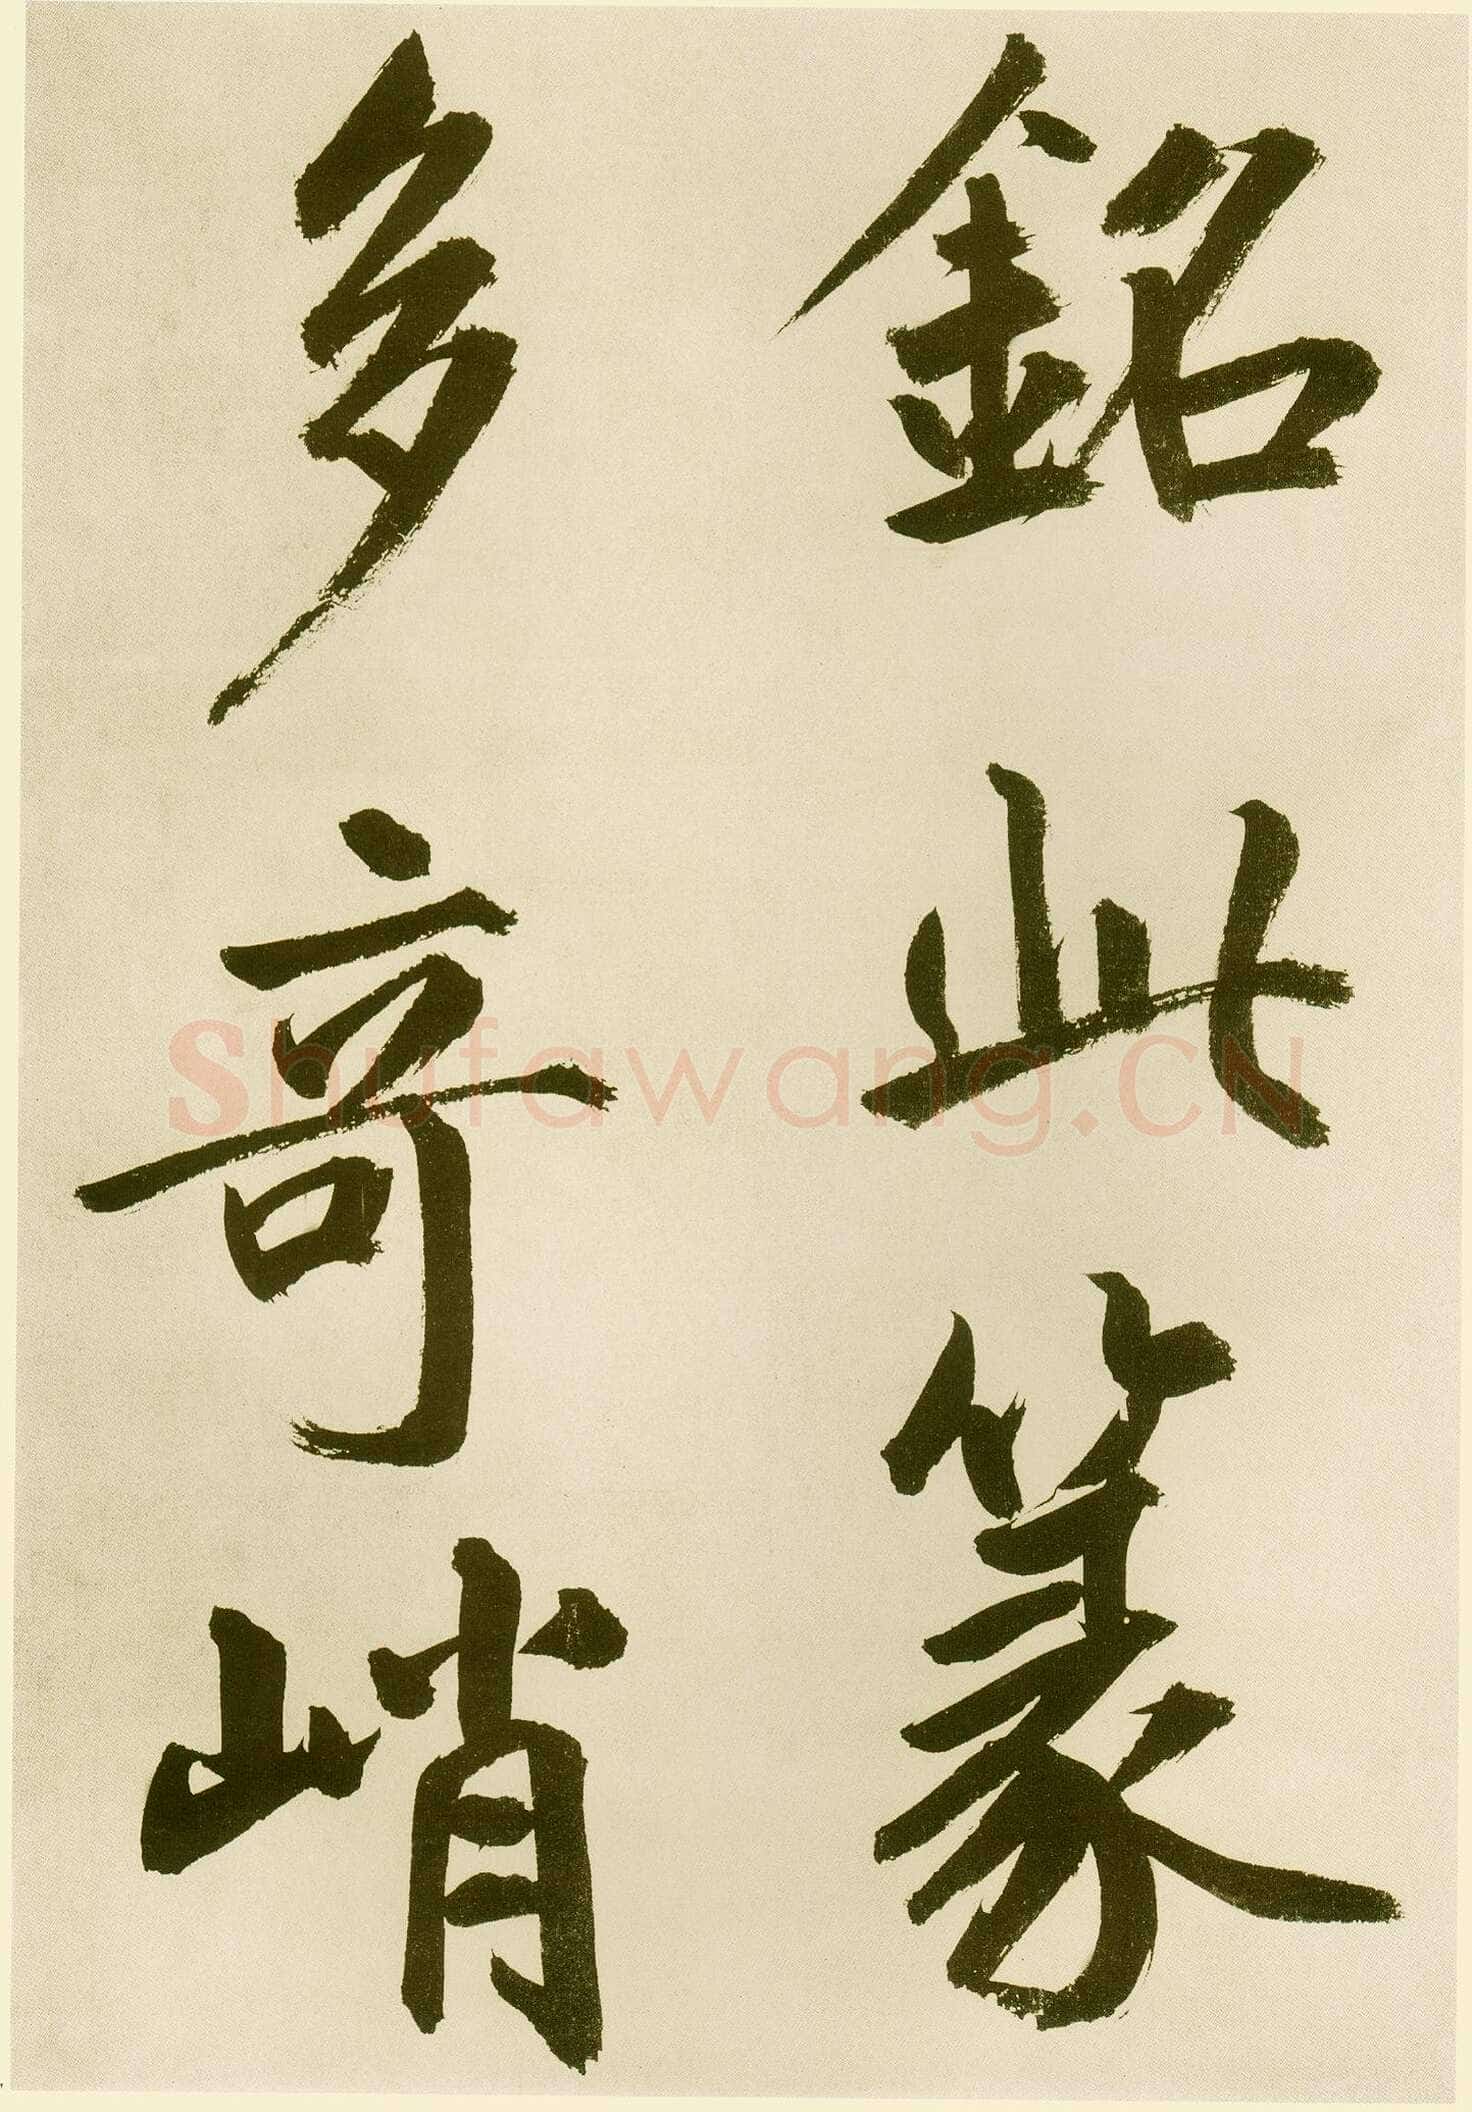 銘此篆
多竒峭
Shufawang.CN